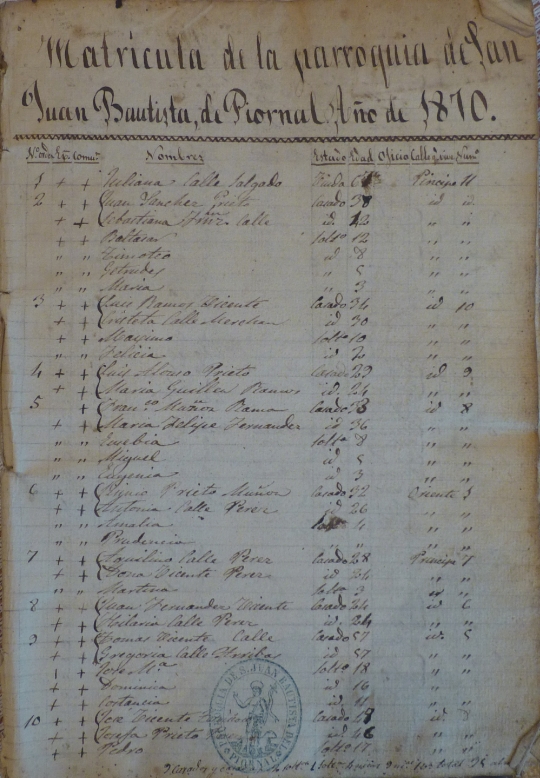 Matricula de la parroquia de San
Juan Bautista, de Piornal, Año de 1870.
Nombres Estado Edad Oficio Calle Núm.
1 + + Juliana Calle Salgado Viuda Principe 11
2 + + Juan Sanchez Prieto Casado 38 id id.
+ + Sebastiana Calle id. 42 " "
+ + Baltasar Solt.º 12 " "
" " Timoteo id 8 " "
" " " 5 " "
" " Maria " 3 " "
3 + + Luis Ramos Vicente Casado 36 id 10
+ + Calle Merchan id 30 " "
+ + Maximo Solt.º 10 " "
" " Felicia id 2 " "
4 + + Luis Alonso Prieto Casado 29 id 9
+ + Maria Guillen Ramos id. 24 " "
5 + + Fran.co Muñoz Rama Casado id 8
+ + Maria Felipe Fernandez id 36 " "
" " Eusebia Solt.ª 8 " "
" " Miguel id 5 " "
" " Eugenia id 3 " "
6 + + Prieto Muñoz Casado 32 Oriente 3
+ + Antonia Calle Perez id 26 " "
" " Amalia 4 " "
" " Prudencia " " " "
7 + + Aquilino Calle Perez Casado 28 Principe 7
+ + Vicente Perez id 24 " "
" " Martina Solt.ª 3 " "
8 + + Juan Fernandez Vicente Casado 24 id 6
+ + Hilaria Calle Perez id. 24 " "
9 + + Tomas Vicente Calle Casado 57 id. 5
+ + Gregoria Calle Arriba id 57 " "
+ + Jose M.ª Solt.º 18 " "
+ + Dominica id 16 " "
+ + id 11 " "
10 + + Jose Vicente Casado 48 id.
+ + Josefa Prieto id 46 " "
+ + Pedro Solt.º 17 " "
S. JUAN BAUTISTA
PIORNAL